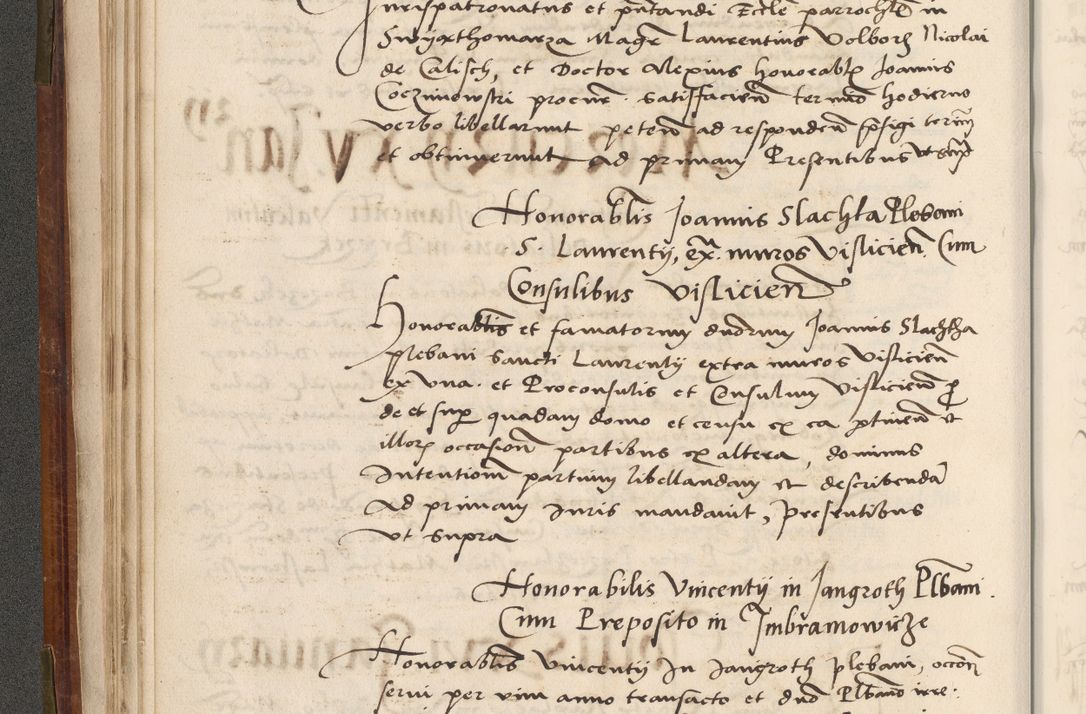 Jurispatronatus et pntandi Eccle parrochle in
Swyathomarza Magr Laurentius Volborz Nicolai
de Calisch, et Doctor Alexius honorabl Joannis
Coczmowski procur. satisfacien termino hodierno
verbo libellarunt peten ad responden pfigi termin
et obtinuerunt Ad primam Presentibus ut supra
Honorablis Joannis Slachta Plebani
S. Laurentij, exa. muros Vislicien Cum
Consulibus Vislicien
Honorablis et famatorum dnorum Joannis Slachtha
plebani Sancti Laurentij extra muros Vislicien
ex vna. et Proconsulis et Consulum Vislicien p
de et sup quadam domo et censu ex ea ptinen et
illorum occasion partibus ex altera, dominus
Intentionem partium libellandam et describendam
Ad primam Juris mandavit, Presentibus
vt supra
Honorabilis Vincentij in Jangroth Plbani.
Cum Preposito in Imbramowicze
Honorablis Vincentij In Jangroth plebani, occon
servi per vim anno transacto et dno Plbano irre.